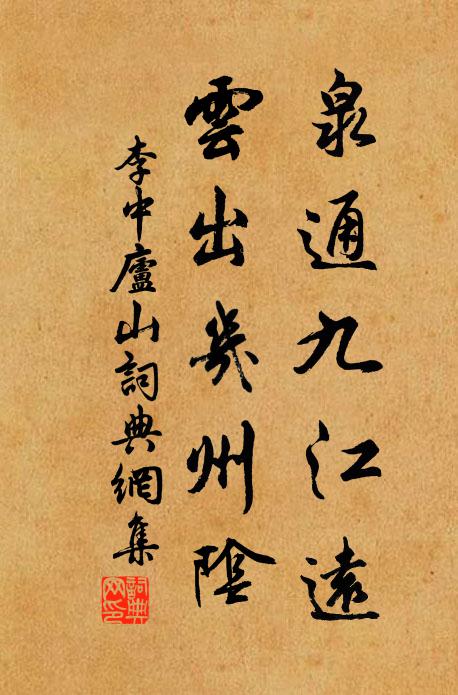 泉通九江遠
雲出幾州陰
李中廬山詞典網集
詞典网印